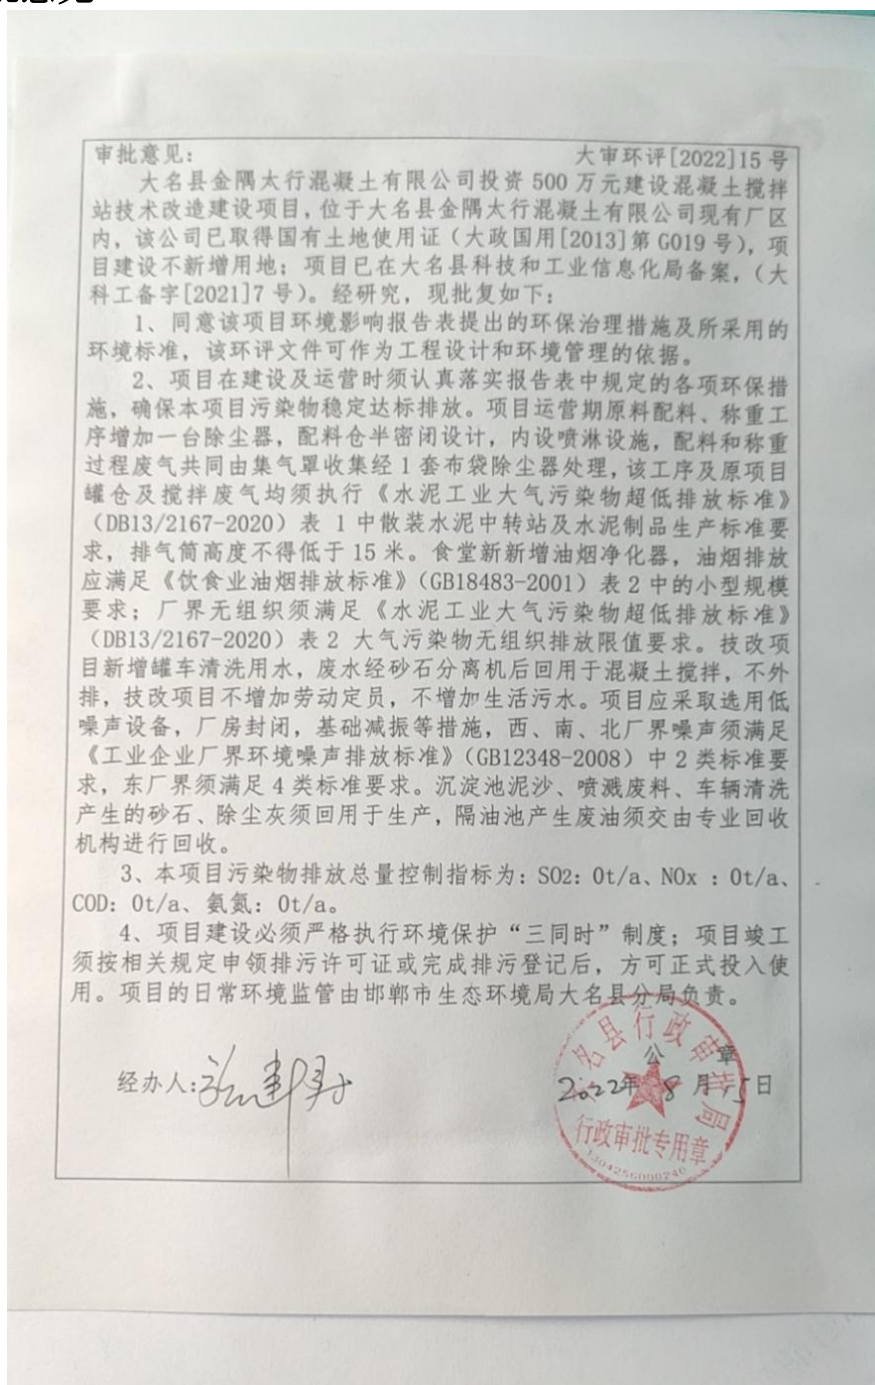 审批意见： 大审环评[2022]15号
大名县金隅太行混凝土有限公司投资500万元建设混凝土搅拌
站技术改造建设项目，位于大名县金隅太行混凝土有限公司现有厂区
内，该公司已取得国有土地使用证（大政国用[2013]第G019号），项
目建设不新增用地；项目已在大名县科技和工业信息化局备案，（大
科工备字[2021]7号）。经研究，现批复如下：
1、同意该项目环境影响报告表提出的环保治理措施及所采用的
环境标准，该环评文件可作为工程设计和环境管理的依据。
2、项目在建设及运营时须认真落实报告表中规定的各项环保措
施，确保本项目污染物稳定达标排放。项目运营期原料配料、称重工
序增加一台除尘器，配料仓半密闭设计，内设喷淋设施，配料和称重
过程废气共同由集气罩收集经1套布袋除尘器处理，该工序及原项目
罐仓及搅拌废气均须执行《水泥工业大气污染物超低排放标准》
（DB13/2167-2020）表 1中散装水泥中转站及水泥制品生产标准要
求，排气筒高度不得低于15米。食堂新新增油烟净化器，油烟排放
应满足《饮食业油烟排放标准》（GB18483-2001）表2中的小型规模
要求；厂界无组织须满足《水泥工业大气污染物超低排放标准》
（DB13/2167-2020）表2 大气污染物无组织排放限值要求。技改项
目新增罐车清洗用水，废水经砂石分离机后回用于混凝土搅拌，不外
排，技改项目不增加劳动定员，不增加生活污水。项目应采取选用低
噪声设备，厂房封闭，基础减振等措施，西、南、北厂界噪声须满足
《工业企业厂界环境噪声排放标准》（GB12348-2008）中2类标准要
求，东厂界须满足4类标准要求。沉淀池泥沙、喷溅废料、车辆清洗
产生的砂石、除尘灰须回用于生产，隔油池产生废油须交由专业回收
机构进行回收。
3、本项目污染物排放总量控制指标为：SO2：0t/a、NOx ：0t/a、
COD：0t/a、氨氮：0t/a。
4、项目建设必须严格执行环境保护“三同时”制度；项目竣工
须按相关规定申领排污许可证或完成排污登记后，方可正式投入使
用。项目的日常环境监管由邯郸市生态环境局大名县分局负责。
公 章
经办人：
2022年 8月15日
大名县行政审批局
行政审批专用章
1304256000240